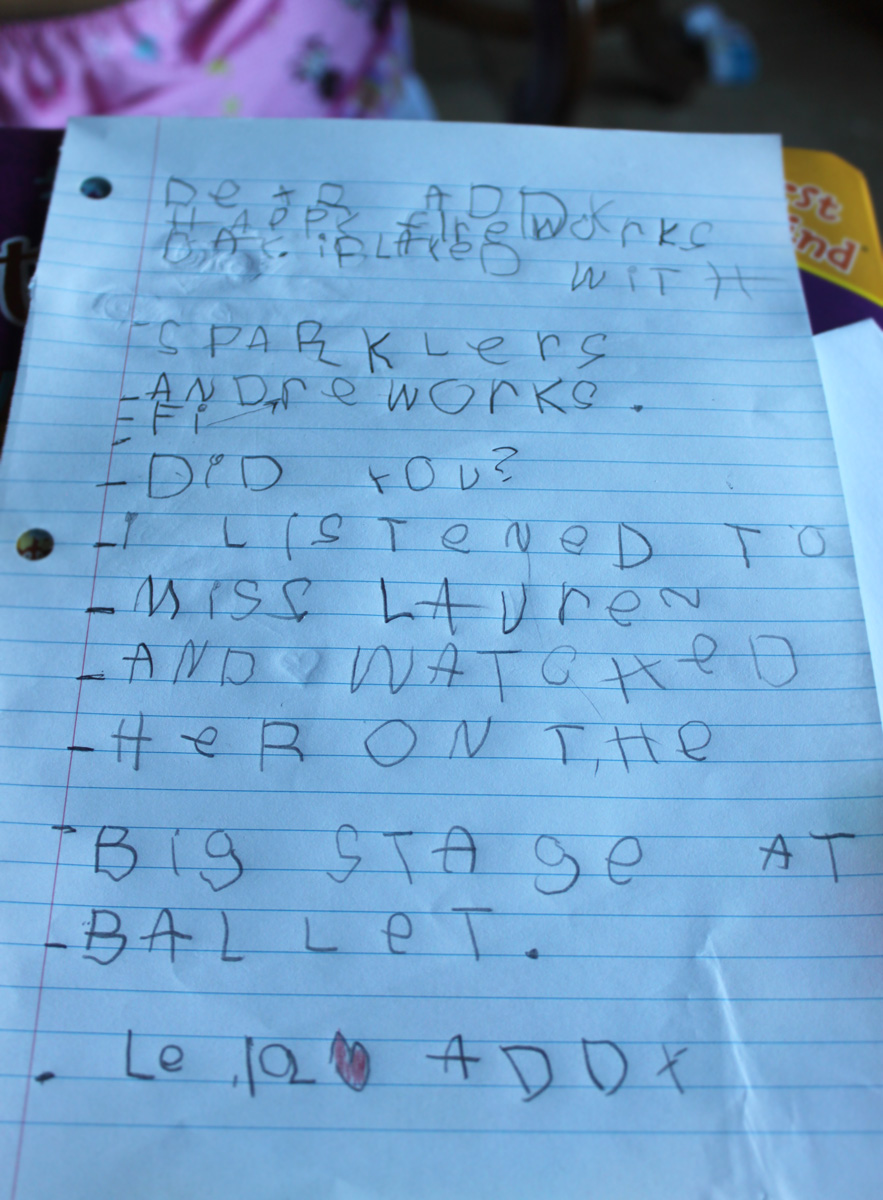 De+R ADDY
HAPPY fireworks
DAY. i PLAYeD
WiTH
SPARKLerS
ANDreworks.
Fi
DiD YOU?
I LiSTeNeD TO
MiSS LAUreN
AND WATCHeD
HeR ON THe
Big STAge AT
BALLeT.
Leila ADDY
est
ind